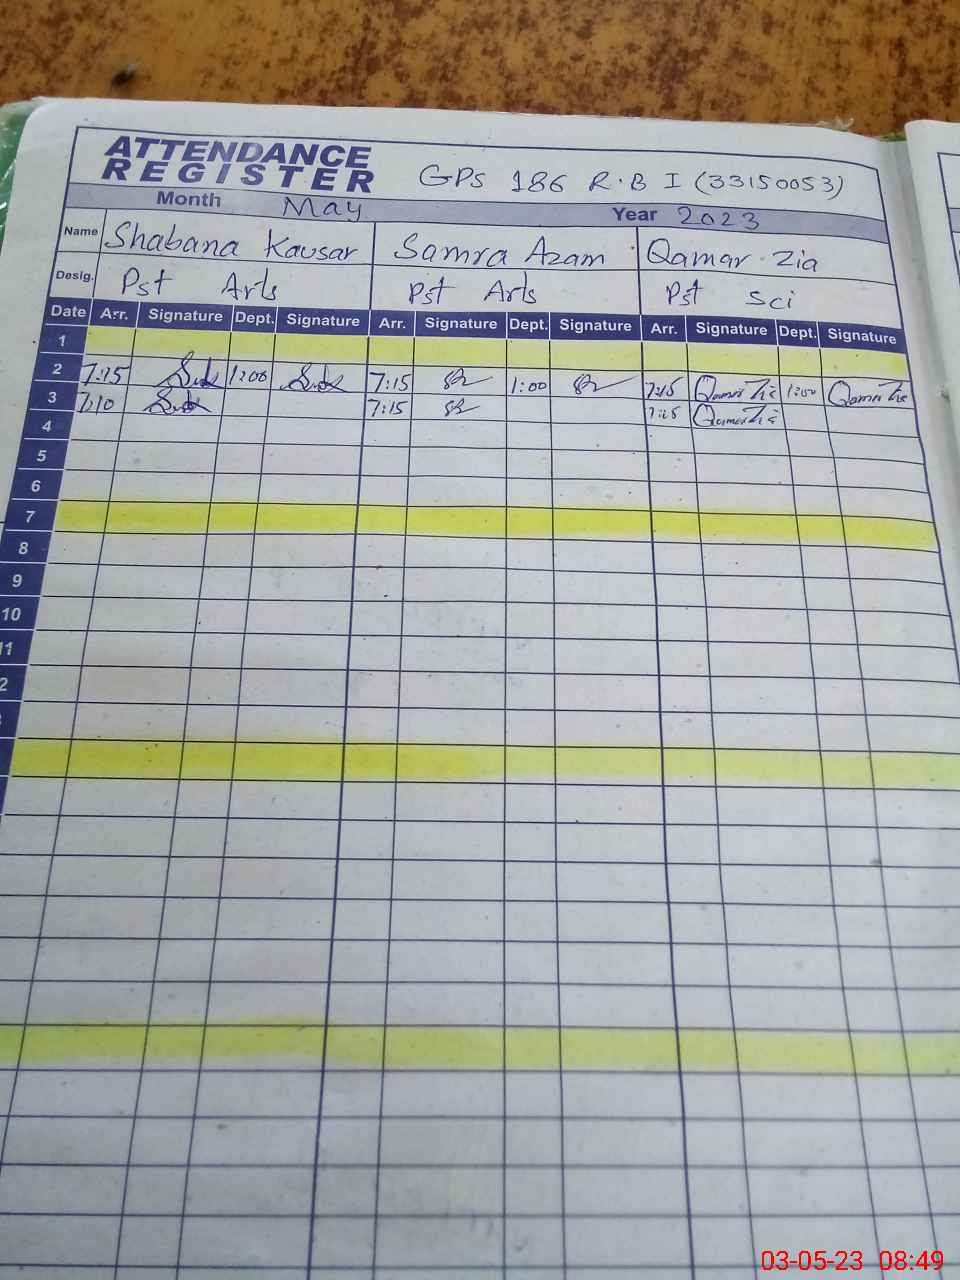 ATTENDANCE
REGISTER GPS 186 R.B I (33150053)
Month May Year 2023
Name Shabana Kausar Samra Azam Qamar Zia
Desig. Pst Arts Pst Arts Pst Sci
Date Arr. Signature Dept. Signature Arr. Signature Dept. Signature Arr. Signature Dept. Signature
1
2 7:15 1:00 7:15 1:00 7:15 Qamar Zia 1:00 Qamar Zia
3 7:10 7:15 Qamar Zia
4
5
6
7
8
9
10
11
2
03-05-23 08:49